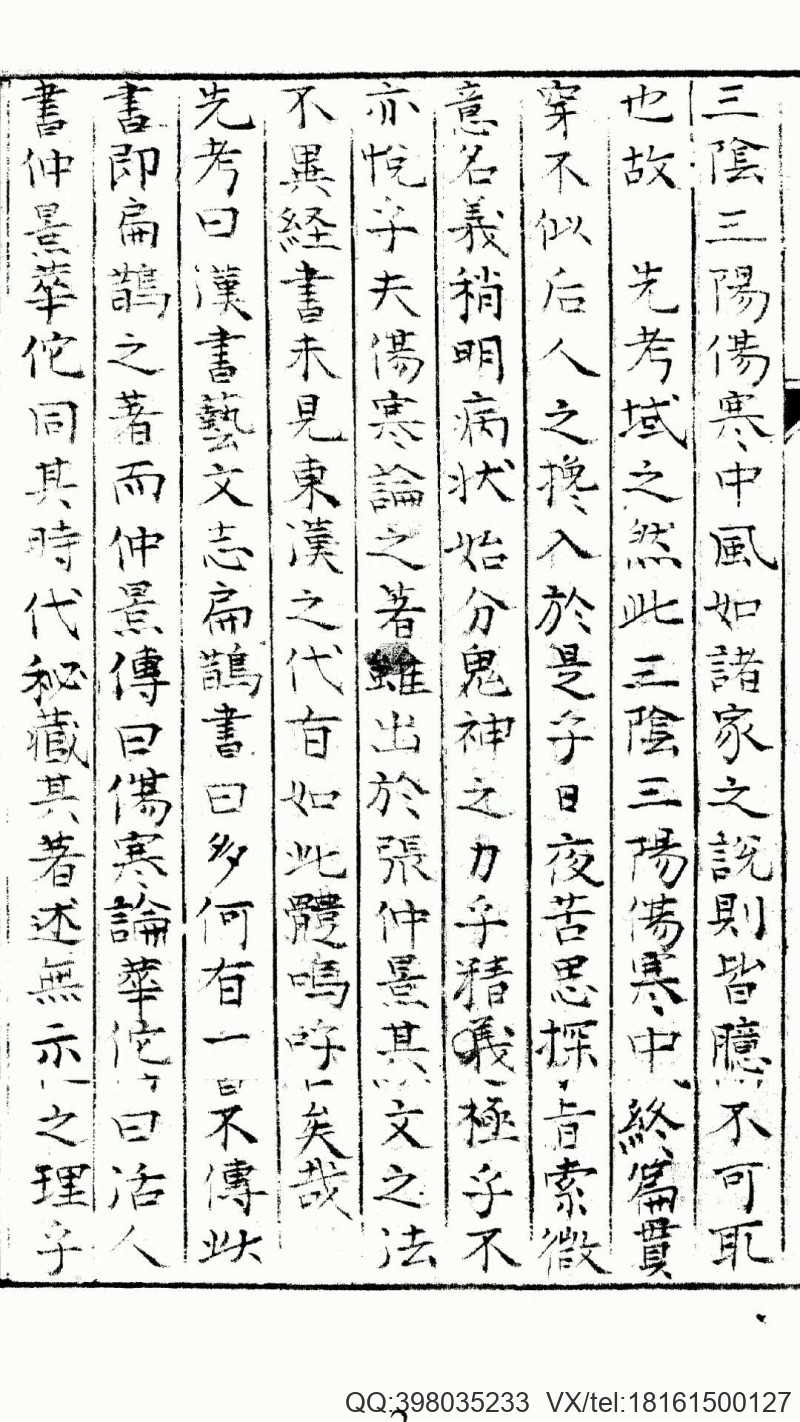 三陰三陽傷寒中風如諸家之説則皆臆不可取
也故 先考域之然此三陰三陽傷寒中終篇貫
穿不似后人之攙入於是乎日夜苦思探旨索微
意名義稍明病状始分鬼神之力乎精義極乎不
亦悦乎夫傷寒論之著雖出於張仲景其文之法
不異経書未見東漢之代有如此體嗚呼矣哉
先考曰漢書藝文志扁鵲書曰多何有一不傳此
書即扁鵲之著而仲景傳曰傷寒論華佗曰活人
書仲景華佗同其時代秘藏其著述無示之理乎
QQ:398035233 VX/tel:18161500127